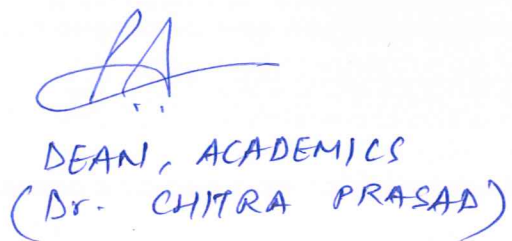 DEAN, ACADEMICS
(Dr. CHITRA PRASAD)